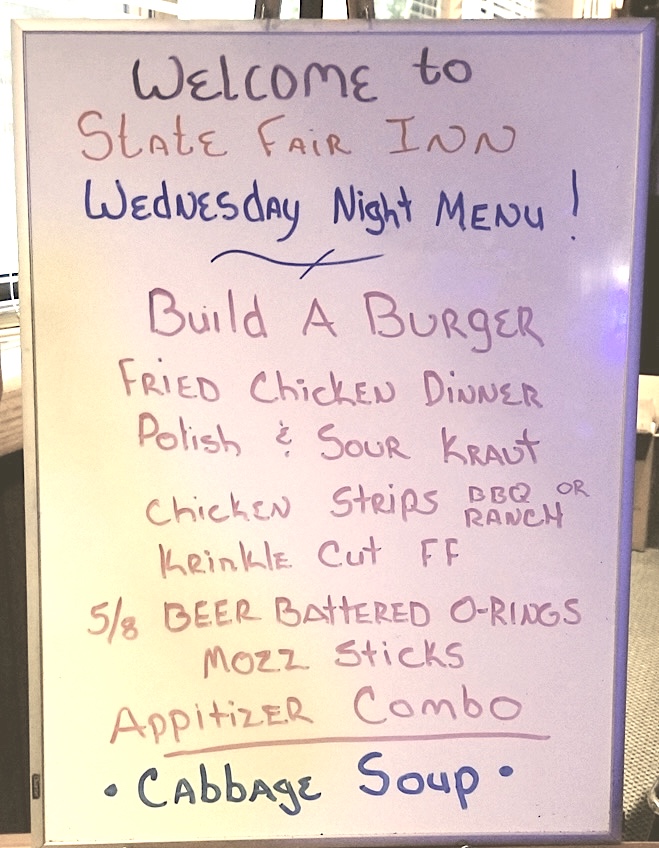 WELCOME to
STATE FAIR INN
WEDNESday Night MENU!
Build A BURGER
FRIED ChickEN DiNNER
Polish & SOUR KRAUT
ChickEN Strips BBQ OR RANCH
KRinkle Cut FF
5/8 BEER BATTERED O-RINGS
MOZZ Sticks
AppitizER Combo
• CAbbAgE Soup •